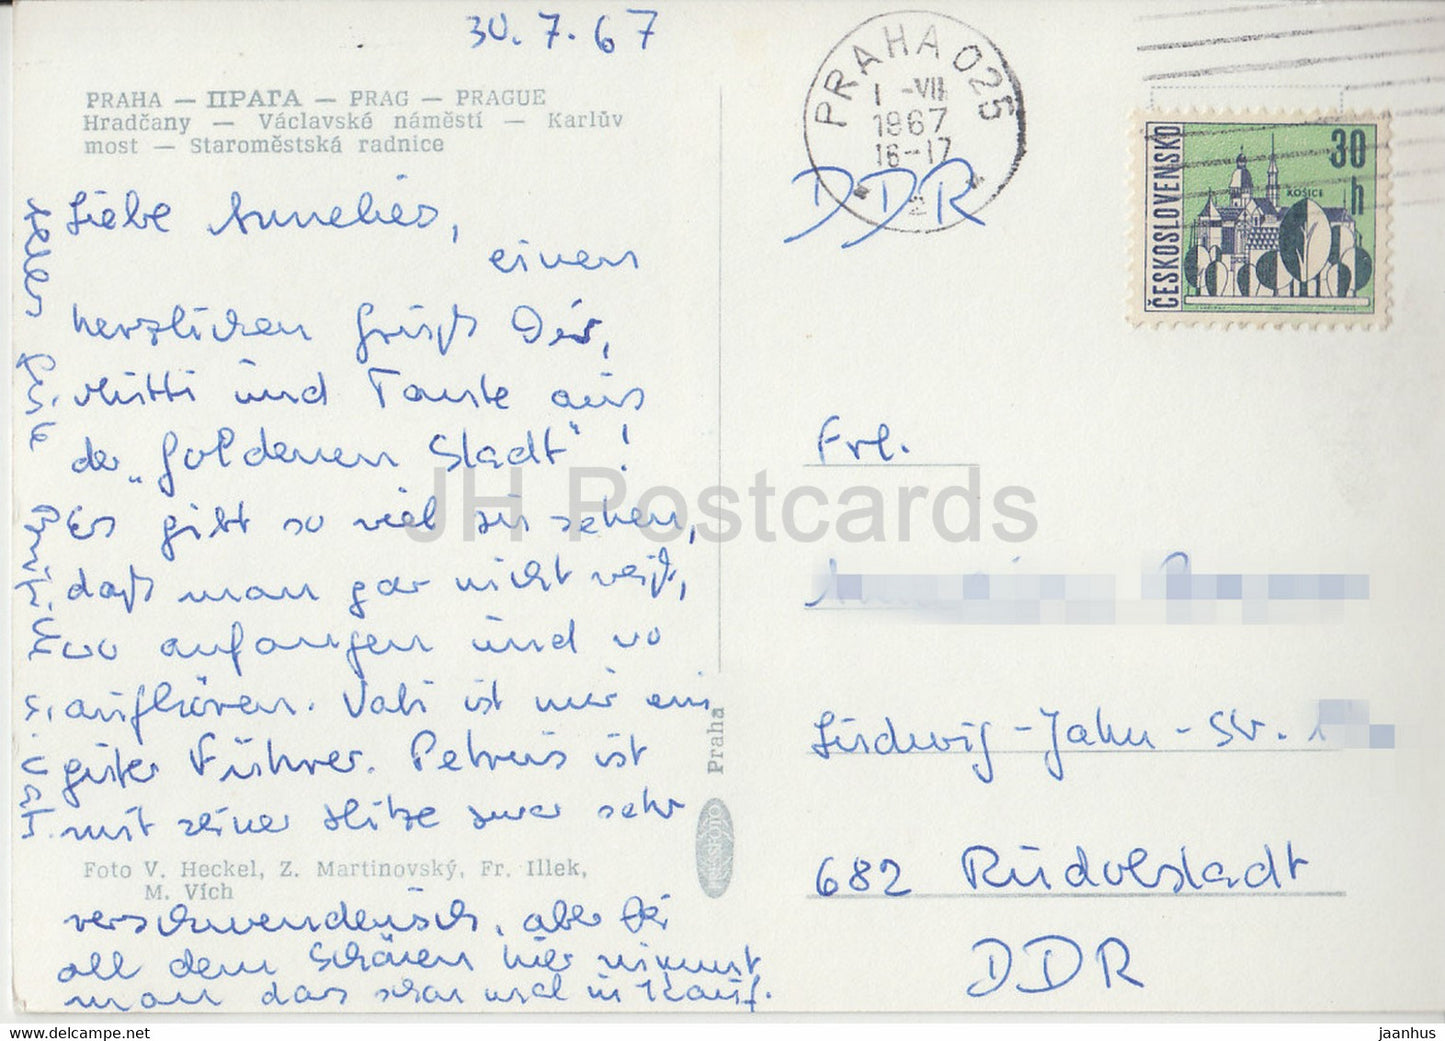 30.7.67
PRAHA — ПРАГА — PRAG — PRAGUE
Hradčany — Václavské náměstí — Karlův
most — Staroměstská radnice
Liebe Annelies,
einen
herzlichen Gruß Dir,
Mutti und Tante aus
der „Goldenen Stadt"!
Es gibt so viel zu sehen,
daß man gar nicht weiß,
wo anfangen und wo
aufhören. Vati ist mir ein
guter Führer. Petrus ist
mit seiner Hitze zwar sehr
Foto V. Heckel, Z. Martinovský, Fr. Illek,
M. Vích
verschwenderisch, aber bei
all dem Schönen hier nimmt
man das schon mal in Kauf.
Alles Gute
Praha
PRESSFOTO
PRAHA 025
1 -VII
1967
16-17
DDR
ČESKOSLOVENSKO
30
h
KOŠICE
Frl.
Ludwig-Jahn-Str.
682 Rudolstadt
DDR
JH Postcards
www.delcampe.net
jaanhus